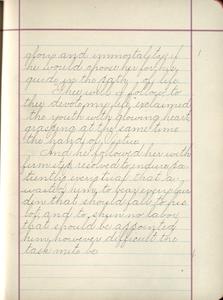 glory and immortality if
he would choose her for his
guide in the path of life
I will follow to
thee devote my life exclaimed
the youth with glowing heart
grasping at the same time
the hand of
And he followed her with
firm resolve to endure pa
tiently every trial that a
waited him, to bear every bur
din that should fall to his
lot, and to shun no labor
that should be appointed
him, however difficult the
task mite be